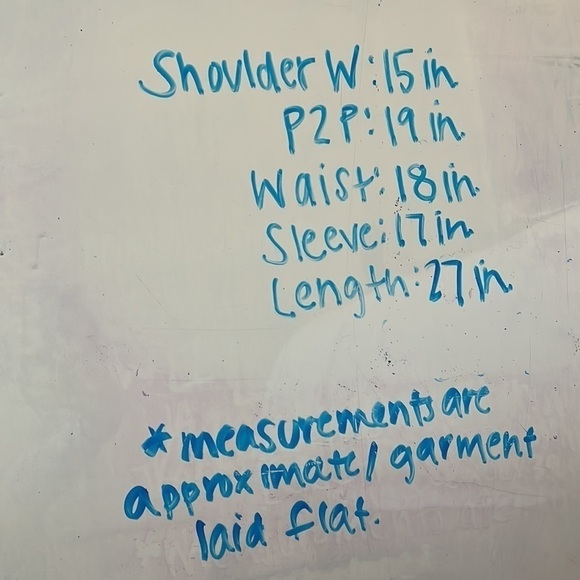 Shoulder W: 15 in
P2P: 19 in.
Waist: 18 in.
Sleeve: 17 in
Length: 27 in.
* measurements are
approximate / garment
laid flat.